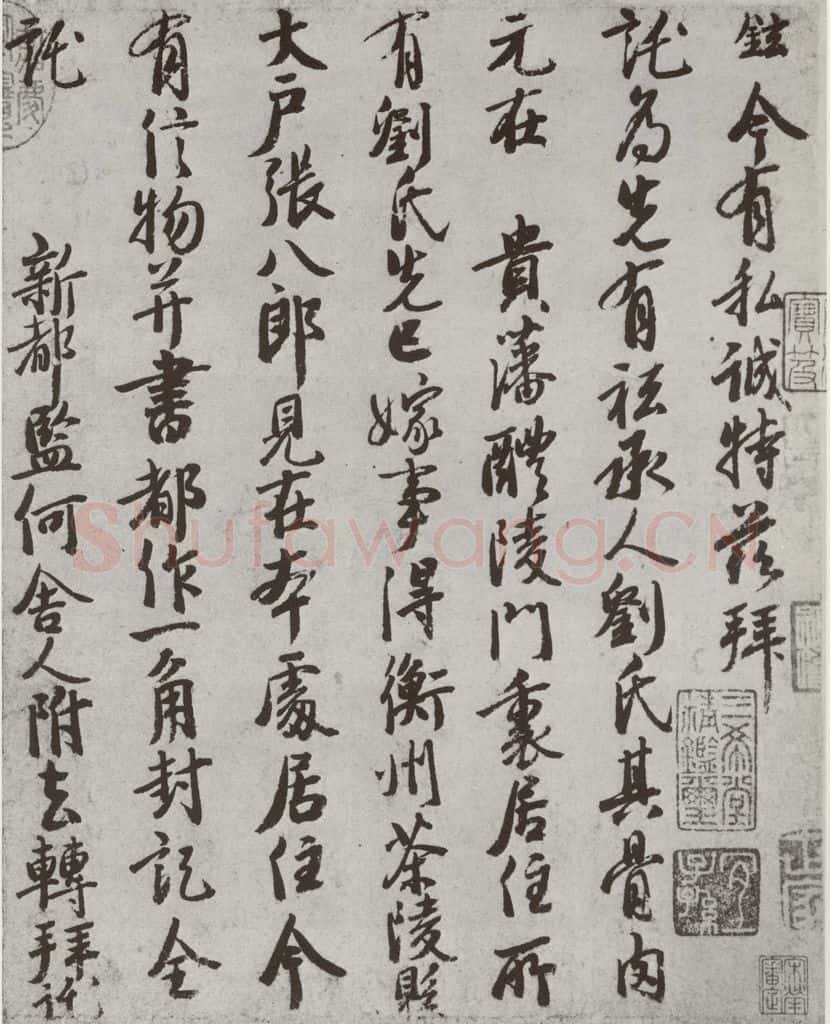 鉉今有私誠特茲拜
託為先有祗承人劉氏其骨肉
元在 貴藩醴陵門裏居住所
有劉氏先已嫁事得衡州茶陵縣
大户張八郎見在本處居住今
有信物并書都作一角封記全
託 新都監何舍人附去轉拜託
三希堂精鑑璽
宜子孫
寶笈
Shufawang.CN